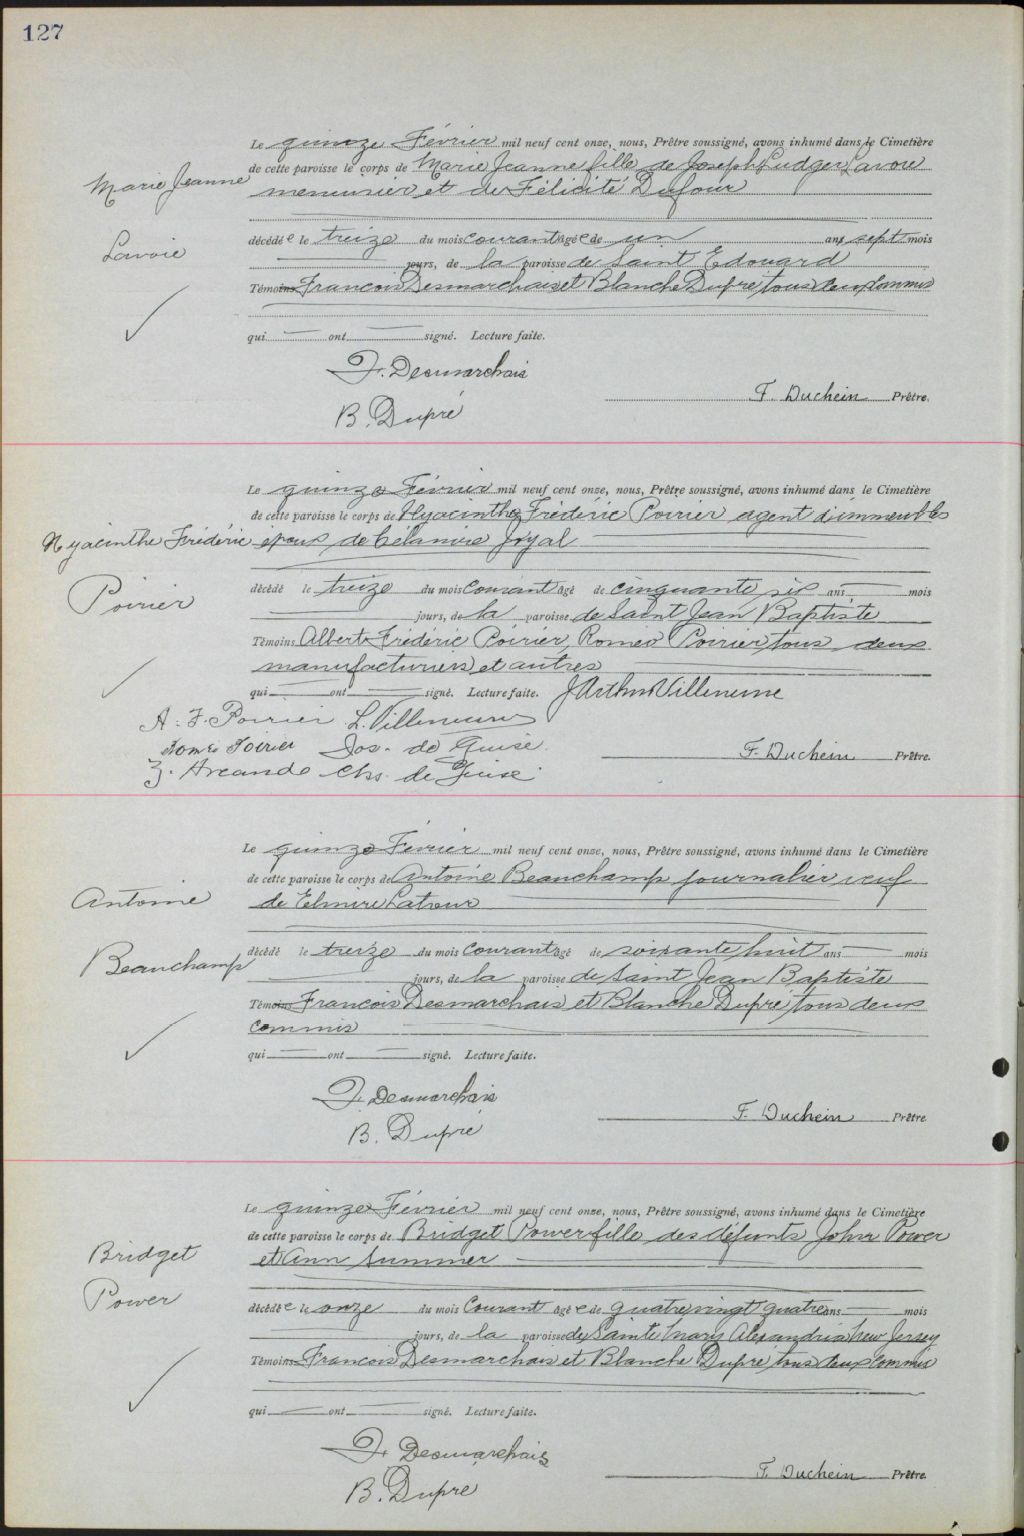 127
Le quinze Février mil neuf cent onze, nous, Prêtre soussigné, avons inhumé dans le Cimetière
de cette paroisse le corps de Marie Jeanne fille de Joseph Ludger Lavoie
Marie Jeanne
menuisier et de Félicité Dufour
Lavoie
décédée le treize du mois courant âgée de un ans sept mois
jours, de la paroisse de Saint Edouard
Témoins Francois Desmarchais et Blanche Dupré tous deux commis
qui ont signé. Lecture faite.
F. Desmarchais
F. Duchein Prêtre.
B. Dupré
Le quinze Février mil neuf cent onze, nous, Prêtre soussigné, avons inhumé dans le Cimetière
de cette paroisse le corps de Hyacinthe Frédéric Poirier agent d'immeubles
Hyacinthe Frédéric époux de Joyal
Poirier
décédé le treize du mois courant âgé de cinquante six ans mois
jours, de la paroisse de Saint Jean Baptiste
Témoins Albert Frédéric Poirier, Romeo Poirier, tous deux
manufacturiers et autres
qui ont signé. Lecture faite. J Arthur Villeneuve
A. F. Poirier L. Villeneuve
Roméo Poirier Jos. de Guise
F. Duchein Prêtre.
Z. Arcande Chs. de Guise
Le quinze Février mil neuf cent onze, nous, Prêtre soussigné, avons inhumé dans le Cimetière
de cette paroisse le corps de Antoine Beauchamp journalier veuf
Antoine
de Elmire Latour
Beauchamp
décédé le treize du mois courant âgé de soixante huit ans mois
jours, de la paroisse de Saint Jean Baptiste
Témoins Francois Desmarchais et Blanche Dupré tous deux
commis
qui ont signé. Lecture faite.
F. Desmarchais
F. Duchein Prêtre
B. Dupré
Le quinze Février mil neuf cent onze, nous, Prêtre soussigné, avons inhumé dans le Cimetière
de cette paroisse le corps de Bridget Power fille des défunts John Power
Bridget
et Ann Summer
Power
décédée le onze du mois Courant âgée de quatre vingt quatre ans mois
jours, de la paroisse de Sainte Mary Alexandria New Jersey
Témoins Francois Desmarchais et Blanche Dupré tous deux commis
qui ont signé. Lecture faite.
F. Desmarchais
F. Duchein Prêtre
B. Dupré